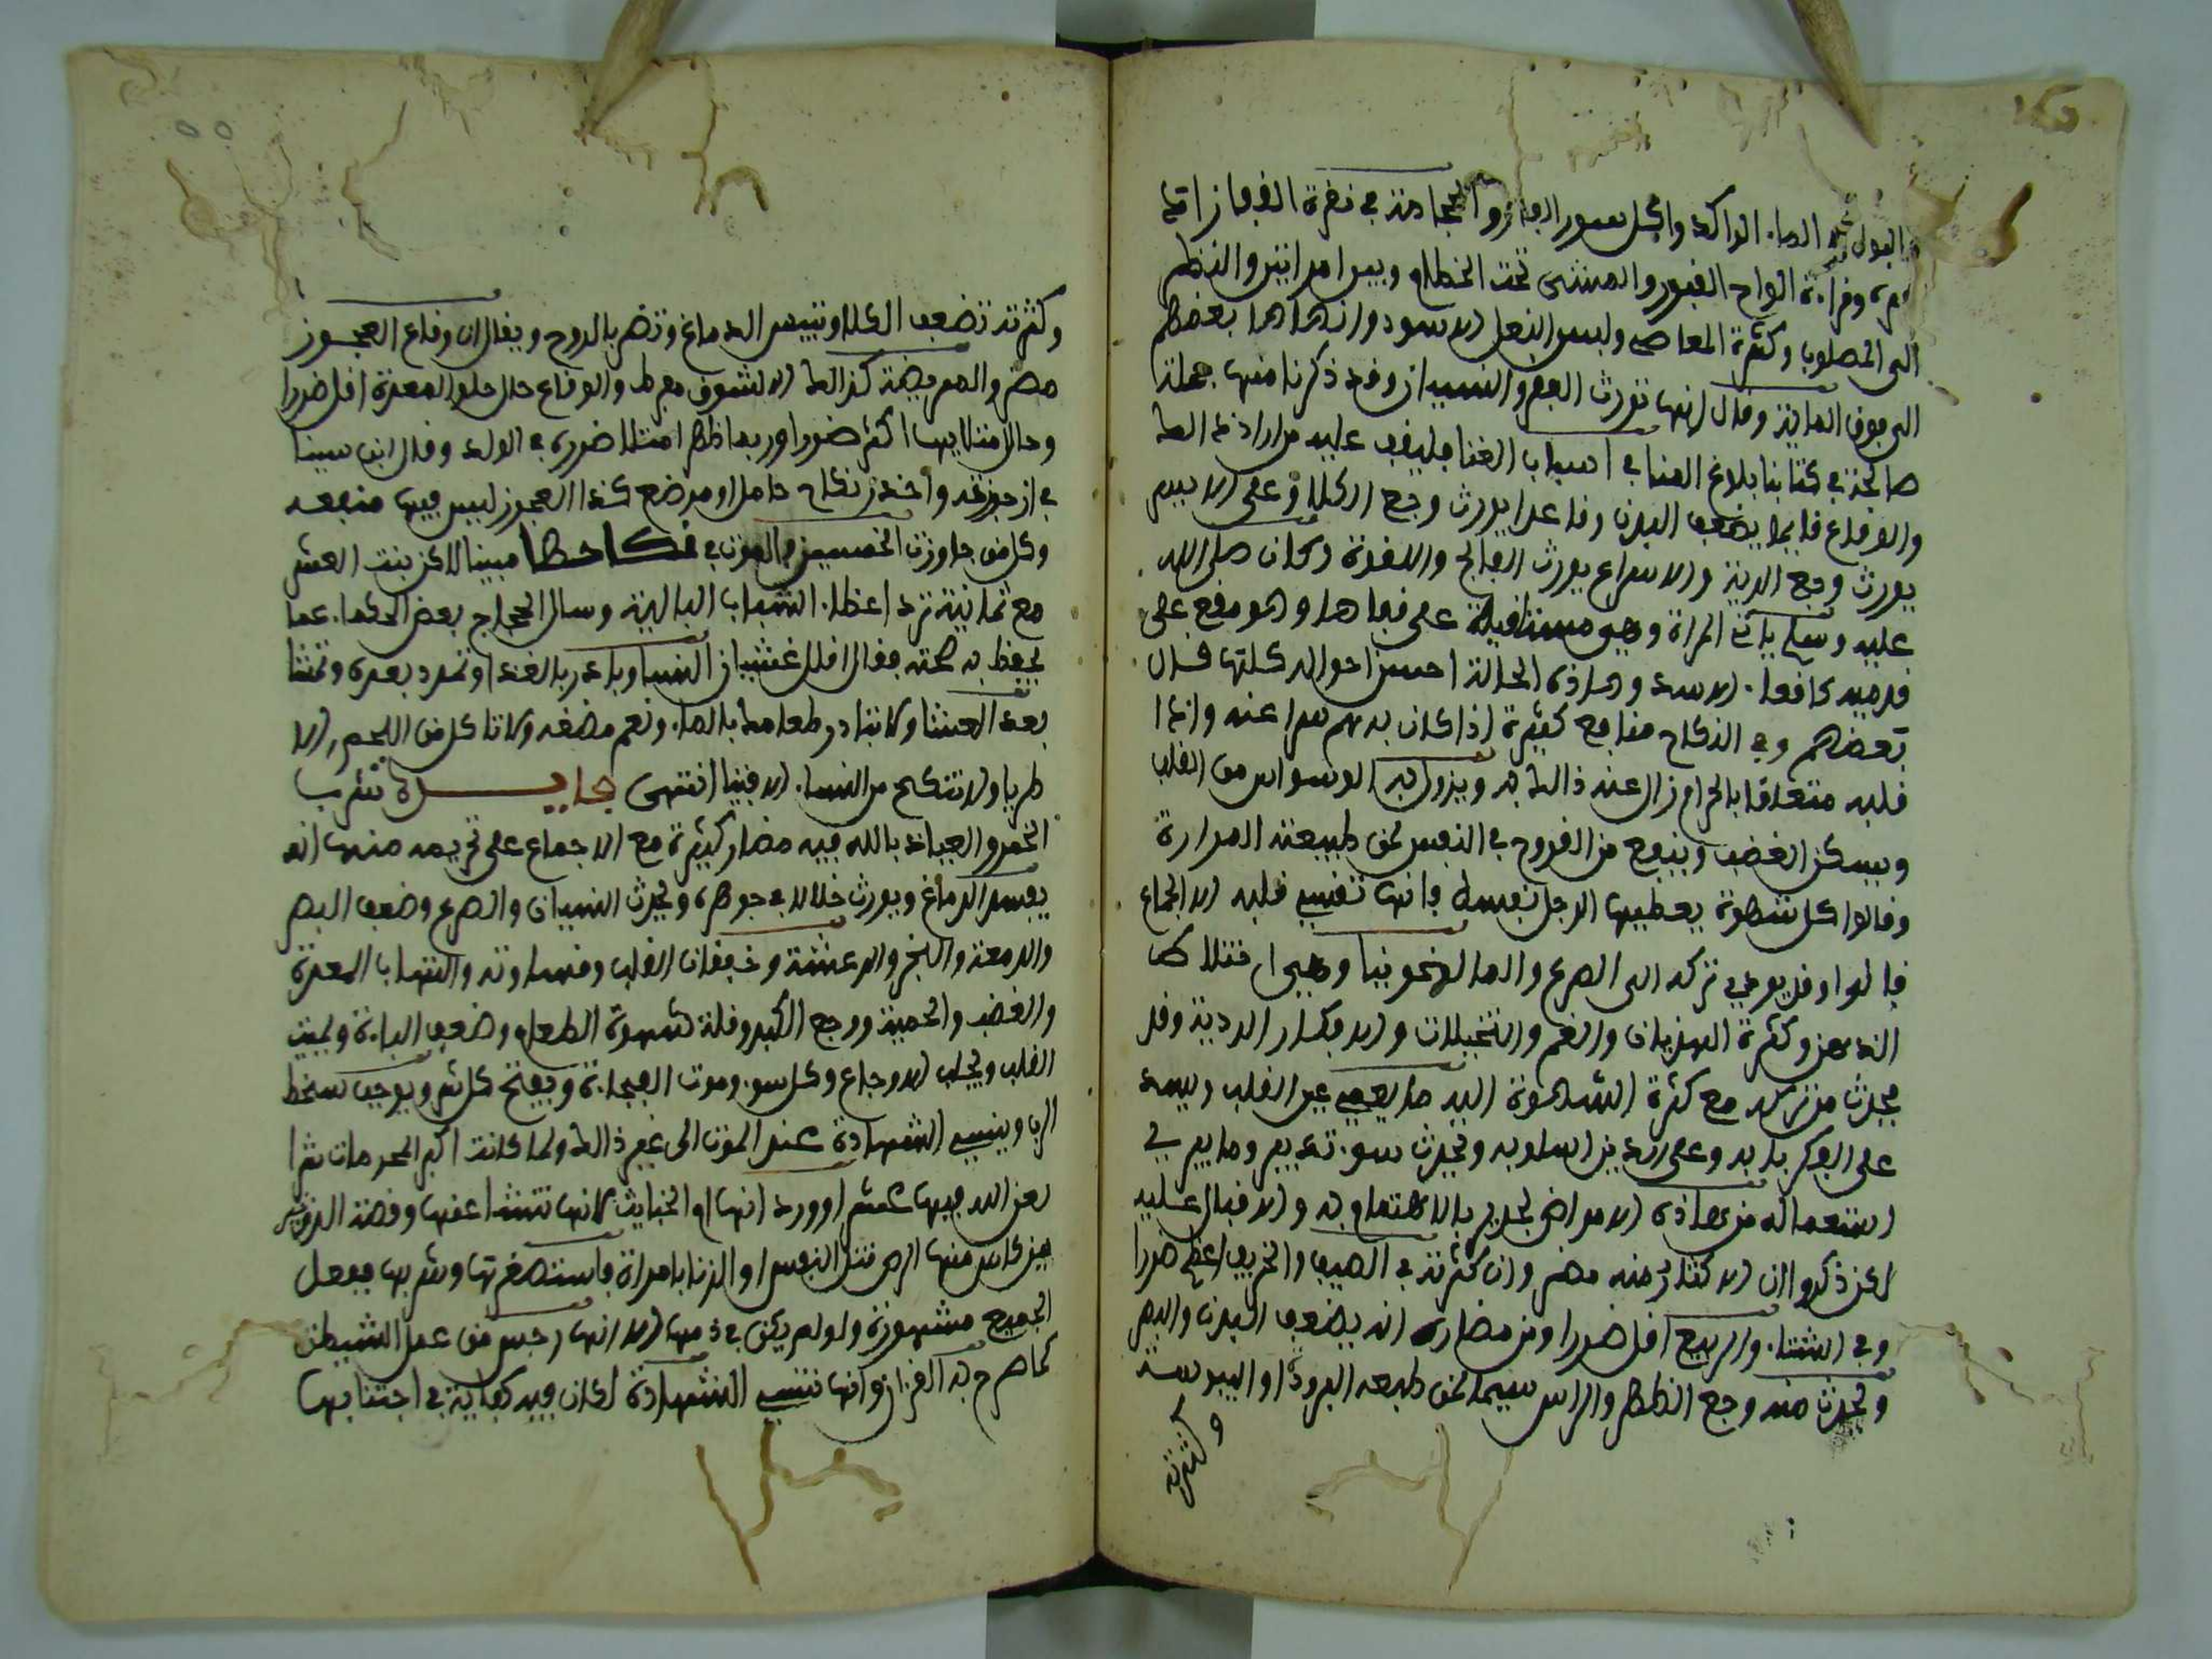 البول في الماء الراكد واكل سور الفار والحجامة في نقرة القفا زاتها
وقراءة الواح القبور والمشي تحت الخطام وبين امراتين والنظر
الى المصلوب وكثرة المعاصي ولبس النعل الاسود وانهاها بعضهم
الى فوق الماية وقال انها تورث الفقر والنسيان وقد ذكرنا منها جملة
صالحة في كتابنا بلاغ المنا في اسباب الغنا فليقف عليه من اراد ذلك
والوقاع قايما يضعف البدن وقاعدا يورث وجع الكلا وعلى الايسر
يورث وجع الرية والاسراع يورث الفالج واللقوة وكان صلى الله
عليه وسلم ياتي المراة وهي مستلقية على قفاها وهو مرفع على
قدميه كاقعاء الاسد وهاذه الحالة احسن احواله كلها قال
بعضهم وفي النكاح منافع كثيرة اذا كان به هم سرا عنه واذا
قلبه متعلقا بالحرام زال عنه ذالك به ويزول به الوسواس من القلب
ويسكن الغضب وينفع من القروح في النفس لمن طبيعته المرارة
وقالوا كل شهوة يعطيها الرجل نفسه فانها تقسي قلبه الا الجماع
قالوا وقد يودي تركه الى الصرع والمالنخونيا وهي اختلاط
الذهن وكثرة الهذيان والغم والتخيلات والافكار الردية وقد
يحدث من تركه مع كثرة الشهوة اليه ما يعمي عين القلب ويسد
على الفكر بابه وعلى الدين اسلوبه ويحدث سوء تدبير وما يرى في
استعماله من هاذه الامراض لجدير بالاهتمام به والاقبال عليه
لكن ذكروا ان الاكثار منه مضر وان كثرته في الصيف والخريف اعظم ضررا
وفي الشتاء والربيع اقل ضررا ومن مضاره انه يضعف البدن والبصر
ويحدث منه وجع الظهر والراس سيما لمن طبعه البرودة او اليبوسة
وكثرته
وكثرته تضعف الكلا وتيبس الدماغ وتضر بالروح ويقال ان وقاع العجوز
مضر والمريضة كذالك الا لشوق مفرط والوقاع حال خلو المعدة اقل ضررا
وحال امتلايها اكثر ضررا وربما ظهر امتلا ضرره في الولد وقال ابن سينا
في ارجوزته واحذر نكاح حامل او مرضع كذا العجوز ليس فيها منفعه
وكل من جاوزت الخمسين فالموت في نكاحها مبينا لاكن بنت العشر
مع ثمانية ترد اعظاء الشباب البالية وسال الحجاج بعض الحكماء عما
يحفظ به صحته فقال اقلل غشيان النساء وباعد بالغداء وتمدد بعده وتمشا
بعد العشا ولا تبادر طعامك بالماء ونعم مضغه ولا تاكل من اللحم الا
طريا ولا تنكح من النساء الا فتيا انتهى فايدة شرب
الخمر والعياذ بالله فيه مضار كثيرة مع الاجماع على تحريمه منها انه
يفسد الدماغ ويورث خللا في جوهره ويحدث النسيان والصرع وضعف البصر
والدمعة والبخر والرعشة وخفقان القلب وقساوته والتهاب المعدة
والغضب والحمية ووجع الكبد وقلة شهوة الطعام وضعف الباءة ويميت
القلب ويجلب الاوجاع وكل سوء وموت الفجاءة ويفتح كل شر ويوجب سخط
الرب وينسي الشهادة عند الموت الى غير ذالك ولما كانت اكبر المحرمات شرا
لعن الله فيها عشرا وورد انها ام الخبايث لانها تنشا عنها وقصة الذي خير
بين كاس منها او قتل النفس او الزنا بامراة فاستصغرتها وشربها ففعل
الجميع مشهورة ولو لم يكن في ذمها الا انها رجس من عمل الشيطن
كما صرح به القرءان وانها تنسي الشهادة لكان فيه كفاية في اجتنابها